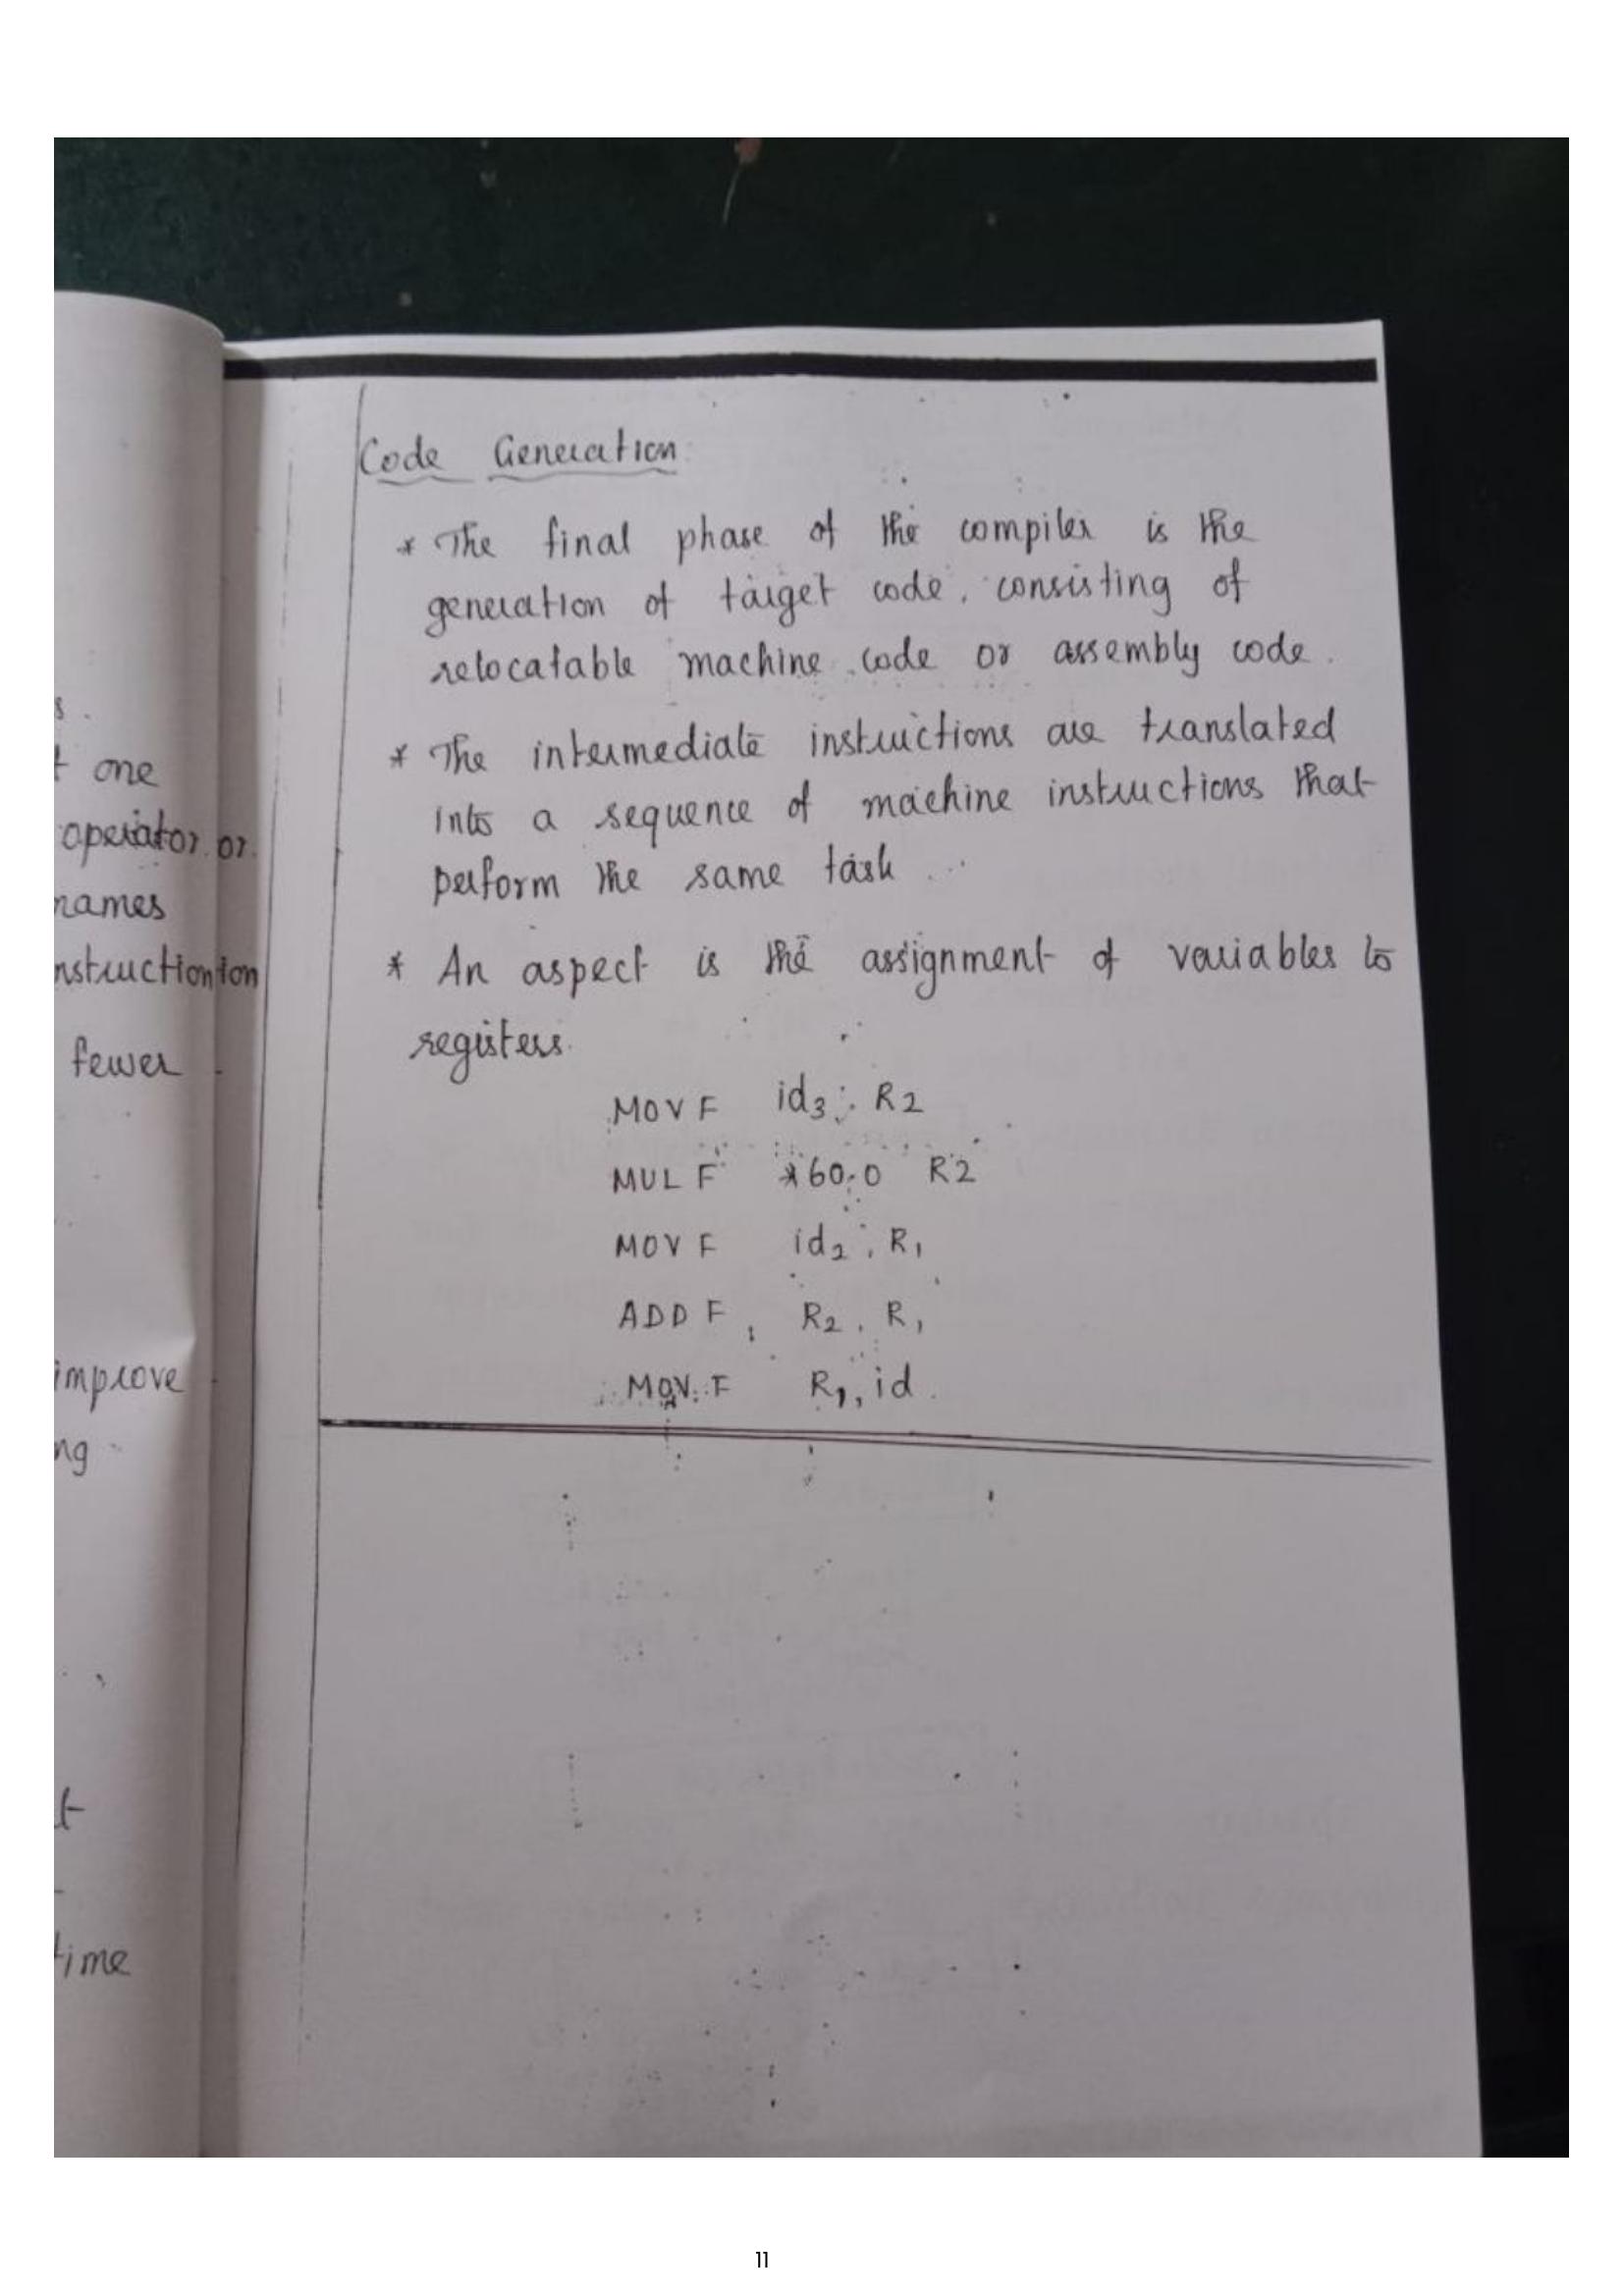 s.
t one
operator or
names
nstruction ion
fewer
improve
ng
t
time
Code Generation:
* The final phase of the compiler is the
generation of target code, consisting of
relocatable machine code or assembly code.
* The intermediate instructions are translated
into a sequence of machine instructions that
perform the same task.
* An aspect is the assignment of variables to
registers.
MOVF id3, R2
MULF *60.0 R2
MOVF id2, R1
ADDF, R2, R1
MOVF R1, id.
11